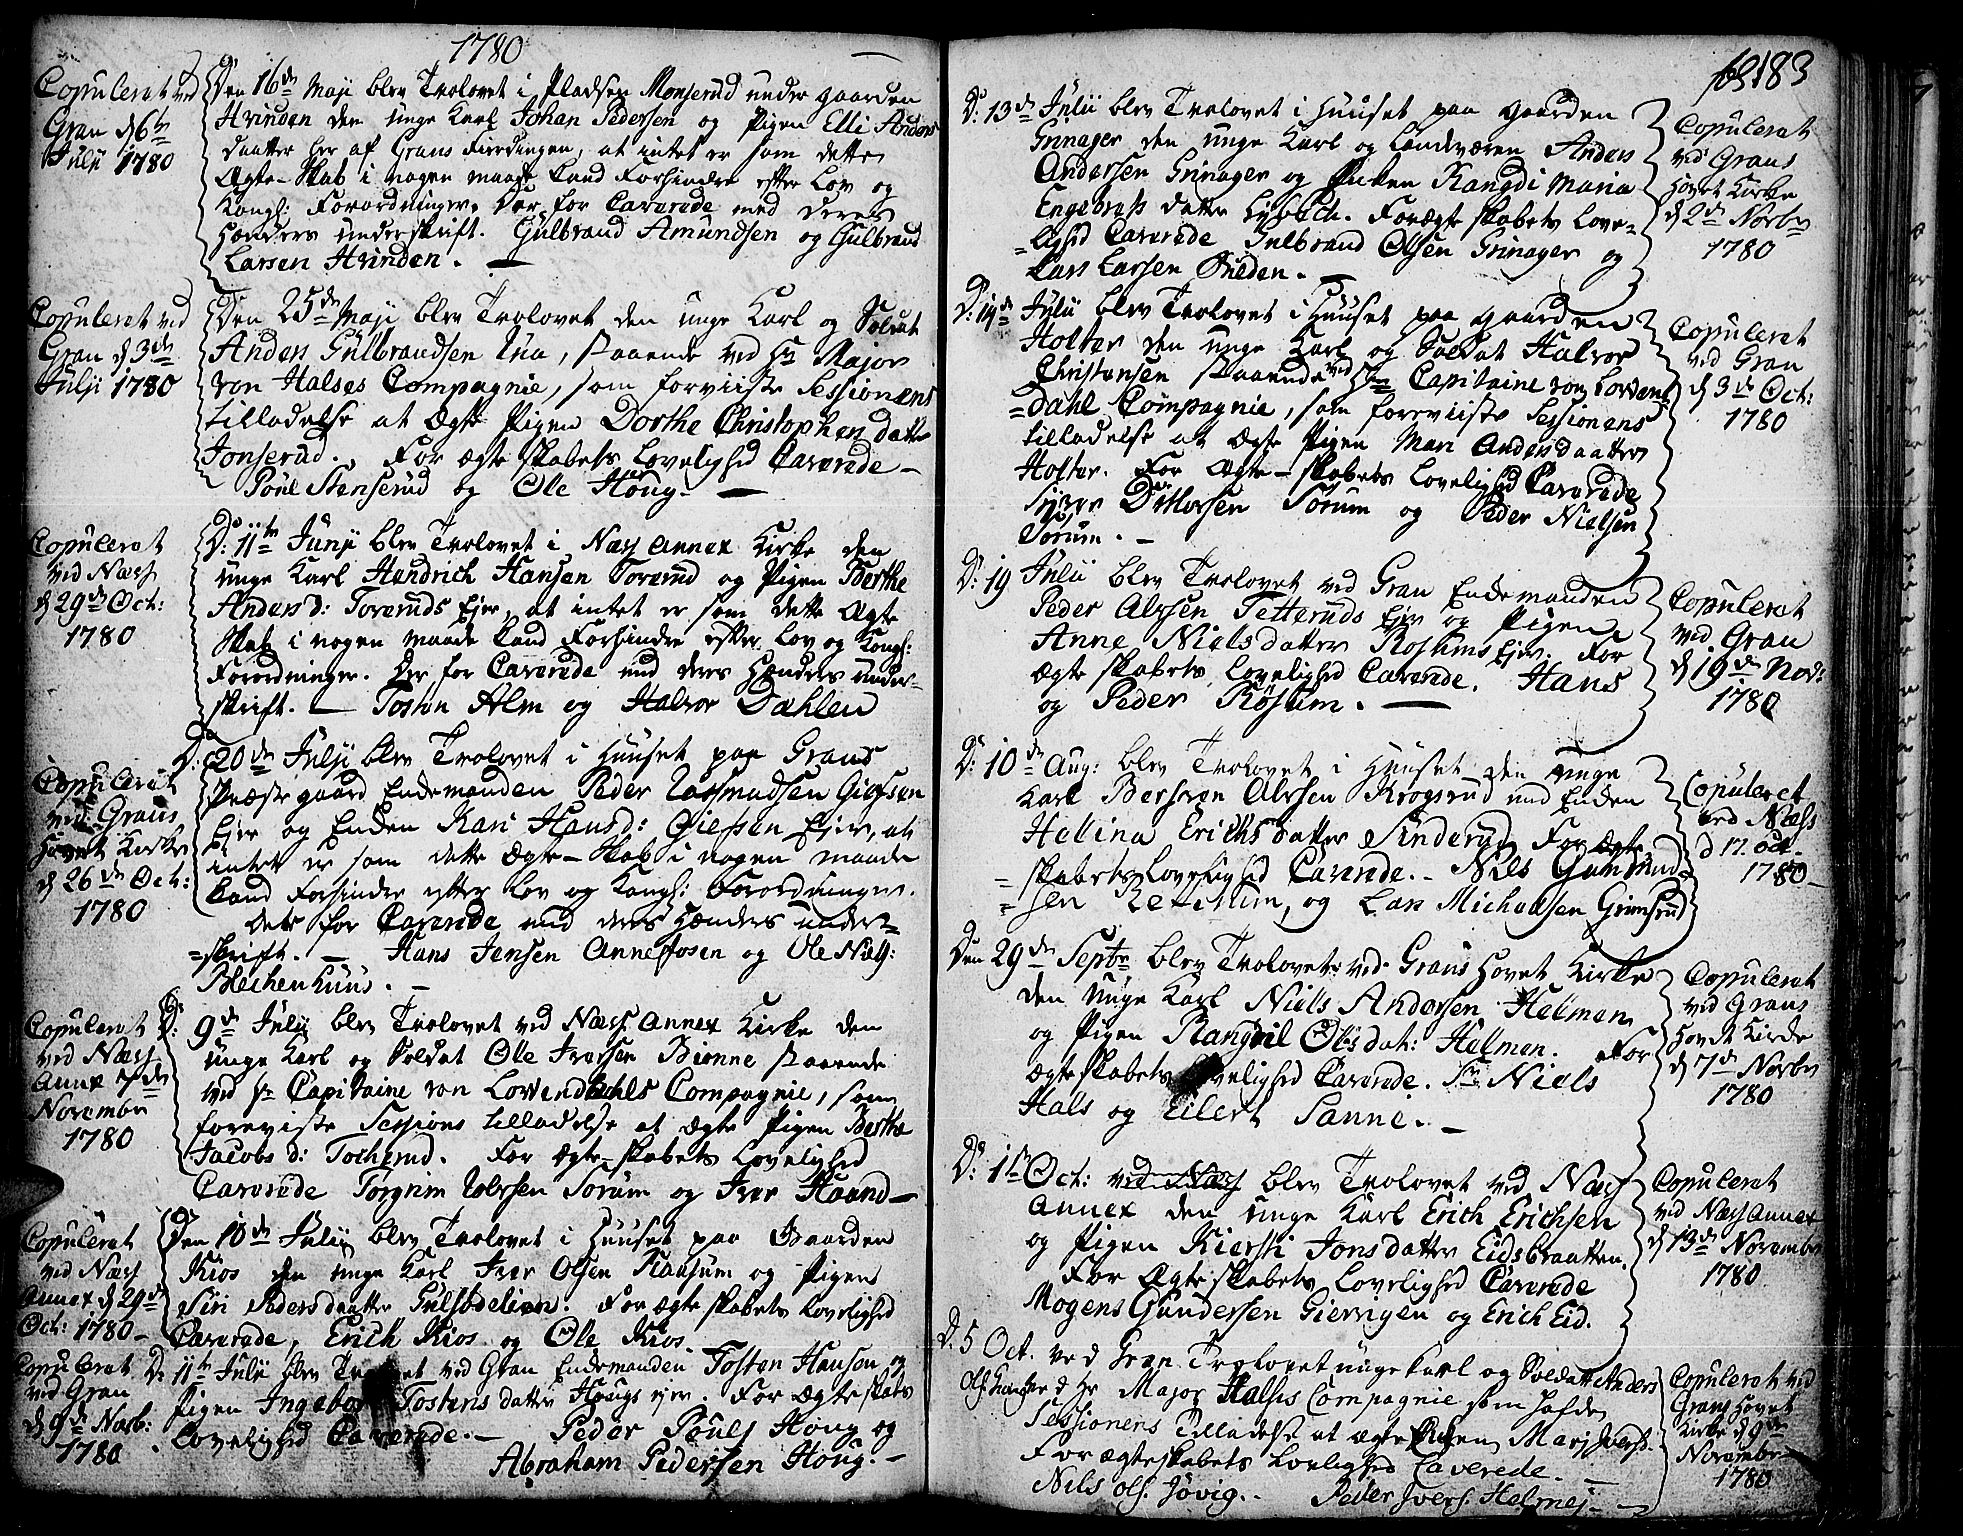 1780
Copuleret ved
Gran d 6te
Julii 1780
Den 16de Maji blev Trolovet i Pladsen Monserud under gaarden
Hvinden den unge Karl Johan Pedersen og Pigen Elli Anders
daatter her af Grans Fierdingen, at intet er som dette
Ægte-Skab i nogen maade kand Forhindre efter Lov og
Kongl: Forordninger. Der for Caverede med deres
Hænders underskrift. Gulbrand Amundsen og Gulbrand
Larsen Hvinden.
Copuleret ved
Gran d 3de
Julji 1780
Den 25de Maji blev Trolovet den unge Karl og Soldat
Anders Gulbrandsen, staaende ved Hr Major
von Halses Compagnie, som forviiste Sessionens
tilladelse at Ægte Pigen Dorthe Christophendatter
Jonserud. For ægteskabets Lovelighed Caverede
Poul Stenserud og Ole Houg.
Copuleret
ved Næss
d 29de Oct:
1780
D: 11te Junji blev Trolovet i Næss Annex Kirke den
unge Karl Hendrich Hansen Torerud og Pigen Berthe
Anders d: Toreruds Ejer, at intet er som dette Ægte
Skab i nogen maade kand Forhindre efter Lov og Kongl:
Forordninger. Der for Caverede med deres Hænders under-
skrift. Tosten Alm og Halvor Dæhlen
Copuleret
ved Grans
Hovet Kirke
d 26de Oct:
1780
D: 20de Julji blev Trolovet i Huuset paa Grans
Præste gaard Enkemanden Peder Rasmudsen Giefsen
Ejer og Enken Kari Hansd: Giefsen Ejer, at
intet er som dette Ægte-Skab i nogen maade
kand Forhindre efter Lov og Kongl: Forordninger.
Der for Caverede med deres Hænders under=
=skrift. Hans Jensen Annefosen og Ole Næss:
Blechenhuus.
Copuleret
ved Næss
Annex 7de
Novembr
1780
D: 9de Julii blev Trolovet ved Næss Annex Kirke den
unge Karl og Soldat Ole Iversen Bionne staaende
ved Hr Capitaine von Lovendahls Compagnie, som
foreviste Sessions tilladelse at ægte Pigen Berthe
Jacobs d: Tocherud. For ægte-skabets Lovelighed
Caverede Torgrim Sorum og Iver Haand
Copuleret
ved Næss
Annex d 29de
Oct: 1780
Den 10de Julij blev Trolovet i Huuset paa Gaarden
Kios den unge Karl Iver Olsen Raasum og Pigen
Siri Pedersdaatter Gulsodelien. For ægteskabets Lovelighed
Caverede, Erich Kios og Ole Kios
Copuleret
ved Gran
d 9de Novb:
1780
D: 11te Julii blev Trolovet ved Gran Enkemanden Tosten Hansen og
Pigen Ingebor Tostensdatter Hougs ejer. For Ægteskabs
Lovelighed Caverede. Peder Pouls Houg og
Abraham Pedersen Houg.
183
D: 13de Julii blev Trolovet i Huuset paa gaarden
Grinager den unge Karl og Landværen Anders
Andersen Grinager og Piken Rangdi Maria
Engebreth datter Lysbech. For ægteskabets Love-
lighed Caverede Gulbrand Olsen Grinager og
Lars Larsen Gulden.
Copuleret
ved Grans
Hovet Kirke
d 2de Novbr
1780
D: 14de Julii blev Trolovet i Huuset paa gaarden
Holter den unge Karl og Soldat Halvor
Christensen staaende ved Hr Capitaine von Lovens
=Dahl Compagnie, som foreviiste Sessionens
tilladelse at ægte Pigen Mari Andersdaatter
Holter. For Ægte-skabets Lovelighed Caverede
Iver Dittlorsen Sorum og Peder Nielsen
Sorum.
Copuleret
ved Gran
d 3de Oct:
1780
D: 19 Julii blev Trolovet ved Gran Enkemanden
Peder Alvsen Tetteruds Ejer og Pigen
Anne Nielsdatter Rosums Ejer: For
ægteskabets Lovelighed Caverede. Hans
og Peder Rosum.
Copuleret
ved Gran
d 19de Nov:
1780
D: 10de Aug: blev Trolovet i Huuset den unge
Karl Bersven Alvsen Krogsrud med Enken
Hellina Erichsdatter Sinderud For ægte
=skabets Lovelighed Caverede. Nils Gunmund-
=sen, og Lars Michaelsen Grimsrud
Copuleret
ved Næss
d 17. oct.
1780
Den 29de Septr blev Trolovet ved Grans Hovet Kirke
den unge Karl Niels Andersen Helmen
og Pigen Rangnil Olsdat: Helmen. For
ægteskabets Lovelighed Caverede. Niels
Hals og Eilert Sanne.
Copuleret
ved Grans
Hovet Kirke
d 7de Novbr
1780
D: 1ste Oct: ved Næss blev Trolovet ved Næss
Annex den unge Karl Erich Erichsen
og Pigen Kiersti Jonsdatter Eidsbraatten.
For Ægteskabets Lovelighed Caverede
Mogens Gundersen Giervigen og Erich Eid.
Copuleret
ved Næss Annex
d 13de November
1780
D. 5 Oct. ved Gran Trolovet unge karl og Soldatt Anders
Hr Major Halses Compagnie som hafde
Sessionens Tilladelse at ægte Pigen Mari Ivers.
For ægteskabets Lovelighed Caverede.
Nils Ols: Jøvig. Peder Ivers: Helmej
Copuleret ved
Grans Hovet
Kirke d 9de
Novembr
1780